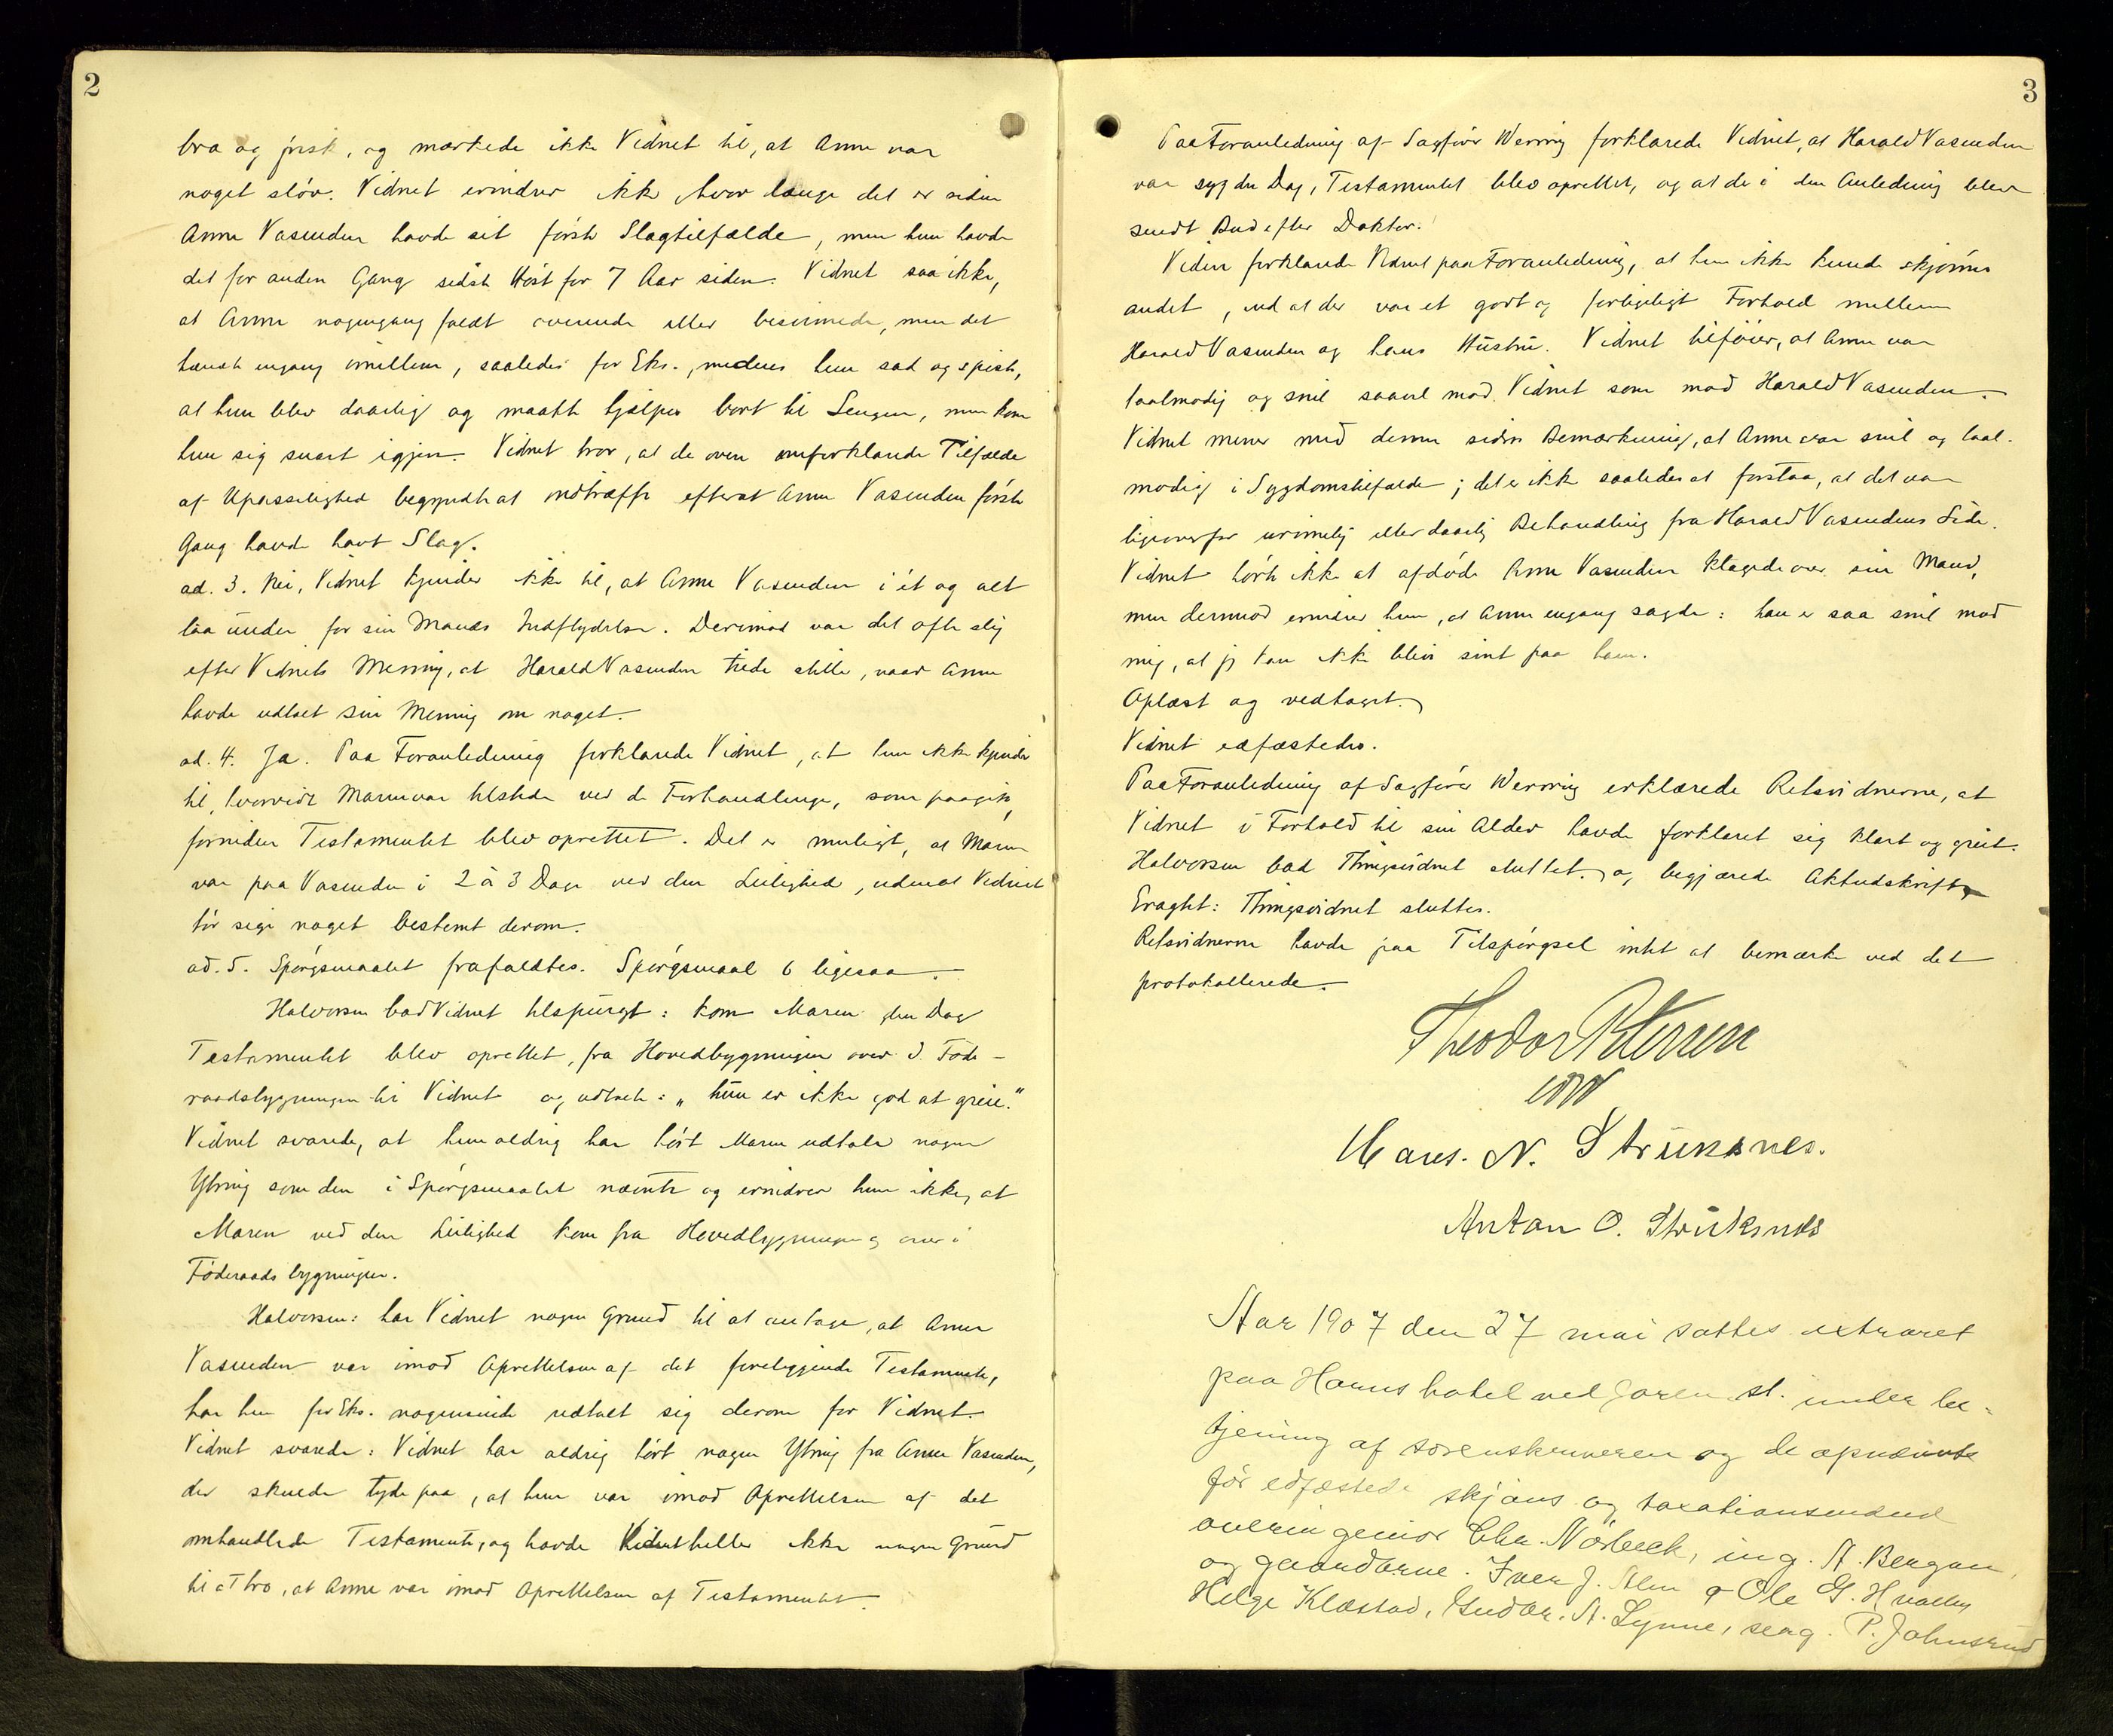 2
bra og frisk, og mærkede ikke Vidnet til, at Anne var
noget sløv. Vidnet erindrer ikke hvor længe det er siden
Anne Vasenden havde sit første Slagtilfælde, men hun havde
det for anden Gang sidste Høst for 7 Aar siden. Vidnet saa ikke,
at Anne nogengang faldt overende eller besvimede, men det
hændte engang imellem, saaledes for Eks., medens hun sad og spiste,
at hun blev daarlig og maatte hjælpes bort til Sengen, men kom
hun sig snart igjen. Vidnet tror, at de oven omforklarede Tilfælde
af Upasselighed begyndte at indtræffe efterat Anne Vasenden første
Gang havde havt Slag.
ad. 3. Nei, Vidnet kjender ikke til, at Anne Vasenden i ét og alt
laa under for sin Mands Indflydelse. Derimod var det ofte slig
efter Vidnets Mening, at Harald Vasenden tiede stille, naar Anne
havde udtalt sin Mening om noget.
ad. 4. Ja. Paa Foranledning forklarede Vidnet, at hun ikke kjender
til, hvorvidt Maren var tilstede ved de Forhandlinger, som paagik,
forinden Testamentet blev oprettet. Det er muligt, at Maren
var paa Vasenden i 2 à 3 Dage ved den Leilighed, udenat Vidnet
tør sige noget bestemt derom.
ad. 5. Spørgsmaalet frafaldtes. Spørgsmaal 6 ligesaa.
Halvorsen bad Vidnet tilspurgt: kom Maren den Dag
Testamentet blev oprettet, fra Hovedbygningen over i Føde-
raadsbygningen til Vidnet og udtalte: „hun er ikke god at greie."
Vidnet svarede, at hun aldrig har hørt Maren udtale nogen
Ytring som den i Spørgsmaalet nævnte og erindrer hun ikke, at
Maren ved den Leilighed kom fra Hovedbygningen og over i
Føderaadsbygningen.
Halvorsen: har Vidnet nogen Grund til at antage, at Anne
Vasenden var imod Oprettelsen af det foreliggende Testamente,
har hun for Eks. nogensinde udtalt sig derom for Vidnet.
Vidnet svarede: Vidnet har aldrig hørt nogen Ytring fra Anne Vasenden,
der skulde tyde paa, at hun var imod Oprettelsen af det
omhandlede Testamente, og havde Vidnet heller ikke nogen Grund
til at tro, at Anne var imod Oprettelsen af Testamentet.
3
Paa Foranledning af Sagfører Werring forklarede Vidnet, at Harald Vasenden
var syg den Dag, Testamentet blev oprettet, og at de i den Anledning blev
sendt Bud efter Doktor.
Viden forklarede Vidnet paa Foranledning, at hun ikke kunde skjønne
andet, end at der var et godt og forligeligt Forhold mellem
Harald Vasenden og hans Hustru. Vidnet tilføier, at Anne var
taalmodig og snil saavel mod Vidnet som mod Harald Vasenden.
Vidnet mener med denne sidste Bemærkning, at Anne var snil og taal-
modig i Sygdomstilfælde; det er ikke saaledes at forstaa, at det var
ligeoverfor urimelig eller daarlig Behandling fra Harald Vasendens Side.
Vidnet hørte ikke at afdøde Anne Vasenden klagede over sin Mand,
men derimod erindrer hun, at Anne engang sagde: han er saa snil mod
mig, at jeg kan ikke blive sint paa ham.
Oplæst og vedtaget.
Vidnet edfæstedes.
Paa Foranledning af Sagfører Werring erklærede Retsvidnerne, at
Vidnet i Forhold til sin Alder havde forklaret sig klart og greit.
Halvorsen bad Thingsvidnet sluttet og begjærede Aktudskrift
Eragtet: Thingsvidnet sluttes.
Retsvidnerne havde paa Tilspørgsel intet at bemærke ved det
protokollerede.
Theodor Petersen
Hans. N. Struksnes.
Anton O. Struksnes
Aar 1907 den 27 mai sattes extraret
paa Hauns hotel ved Garen st. under be-
tjening af sorenskriveren og de opnævnte
før edfæstede skjøns og taxationsmænd
overingeniør Chr. Nørbeck, ing. A. Bergan,
og gaardbrne. Iver J. Alm & Ole G. Hvalby
Helge Klæstad, Gudbr. A. Lynne, seag. P. Johnsrud